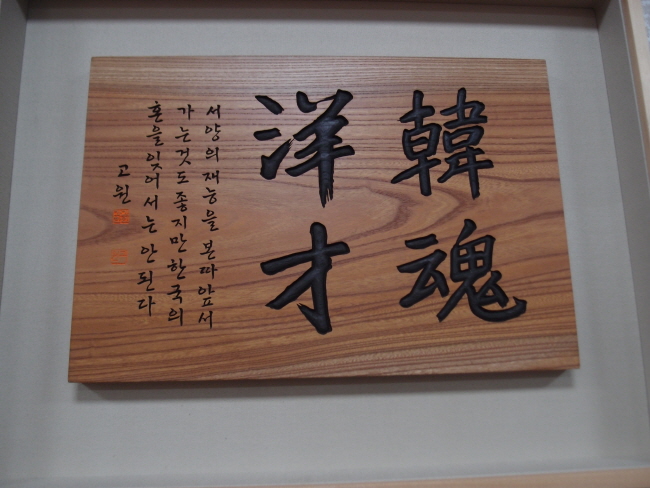 韓魂
洋才
서양의 재능을 본따 앞서
가는것도 좋지만 한국의
혼을 잊어서는 안 된다
고원